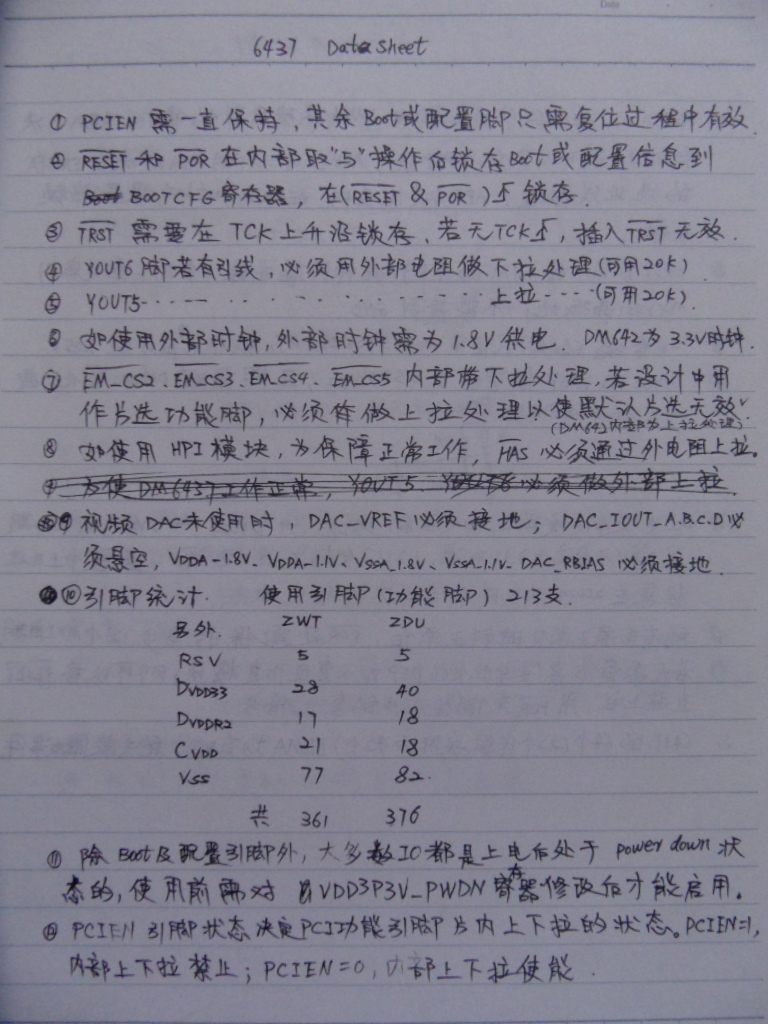 6437 Data Sheet
① PCIEN 需一直保持，其余Boot或配置脚只需复位过程中有效.
② RESET 和 POR 在内部取"与"操作后锁存Boot或配置信息到
BOOTCFG寄存器，在(RESET & POR)↑锁存.
③ TRST 需要在TCK上升沿锁存，若无TCK↑，插入TRST无效.
④ YOUT6脚若有引线，必须用外部电阻做下拉处理(可用20K)
⑤ YOUT5-----------上拉----(可用20K).
⑥ 如使用外部时钟,外部时钟需为1.8V供电. DM642为3.3V时钟.
⑦ EM_CS2、EM_CS3、EM_CS4、EM_CS5 内部带下拉处理,若设计中用
作片选功能脚，必须做上拉处理以使默认片选无效
(DM642内部为上拉处理)
⑧ 如使用HPI模块，为保障正常工作，HAS必须通过外电阻上拉。
⑨ 为使DM6437工作正常，YOUT5、YOUT6必须做外部上拉.
⑨ 视频DAC未使用时，DAC_VREF必须接地；DAC_IOUT_A.B.C.D必
须悬空，VDDA-1.8V、VDDA-1.1V、VSSA_1.8V、VSSA_1.1V、DAC_RBIAS必须接地.
⑩引脚统计. 使用引脚(功能脚) 213支.
另外. ZWT ZDU.
RSV 5 5
DVDD33 28 40
DVDDR2 17 18
CVDD 21 18
VSS 77 82.
共 361 376
⑪ 除Boot及配置引脚外，大多数IO都是上电后处于power down状
态的,使用前需对VDD3P3V_PWDN寄存器修改后才能启用.
⑫ PCIEN引脚状态决定PCI功能引脚片内上下拉的状态。PCIEN=1,
内部上下拉禁止；PCIEN=0,内部上下拉使能.